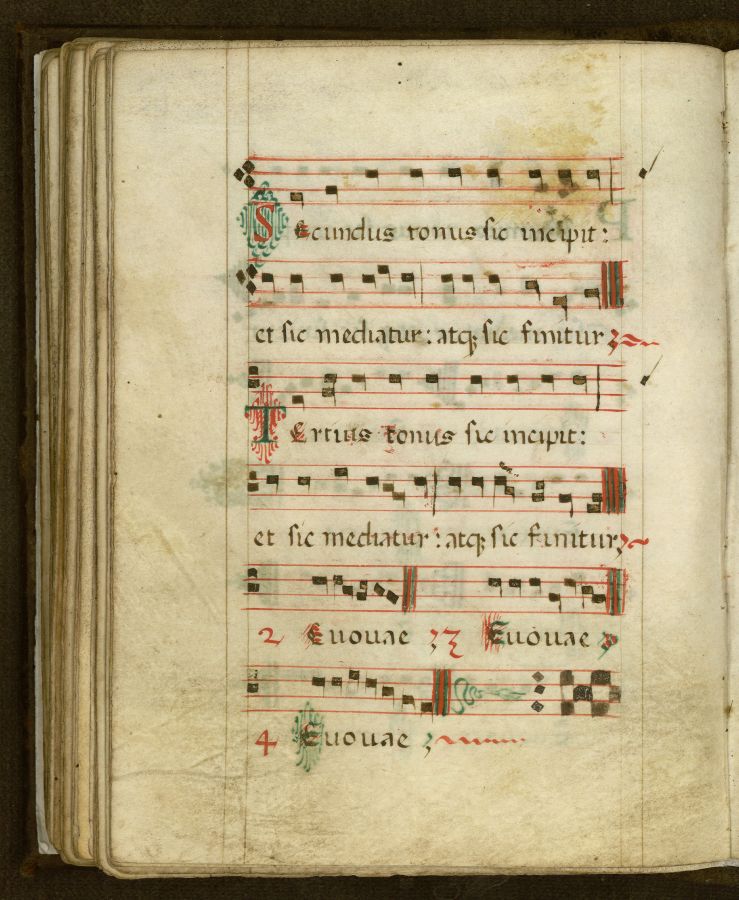 Secundus tonus sic incipit:
et sic mediatur: atq; sic finitur
Tertius tonus sic incipit:
et sic mediatur: atq; sic finitur
2 Euouae 3 Euouae
4 Euouae